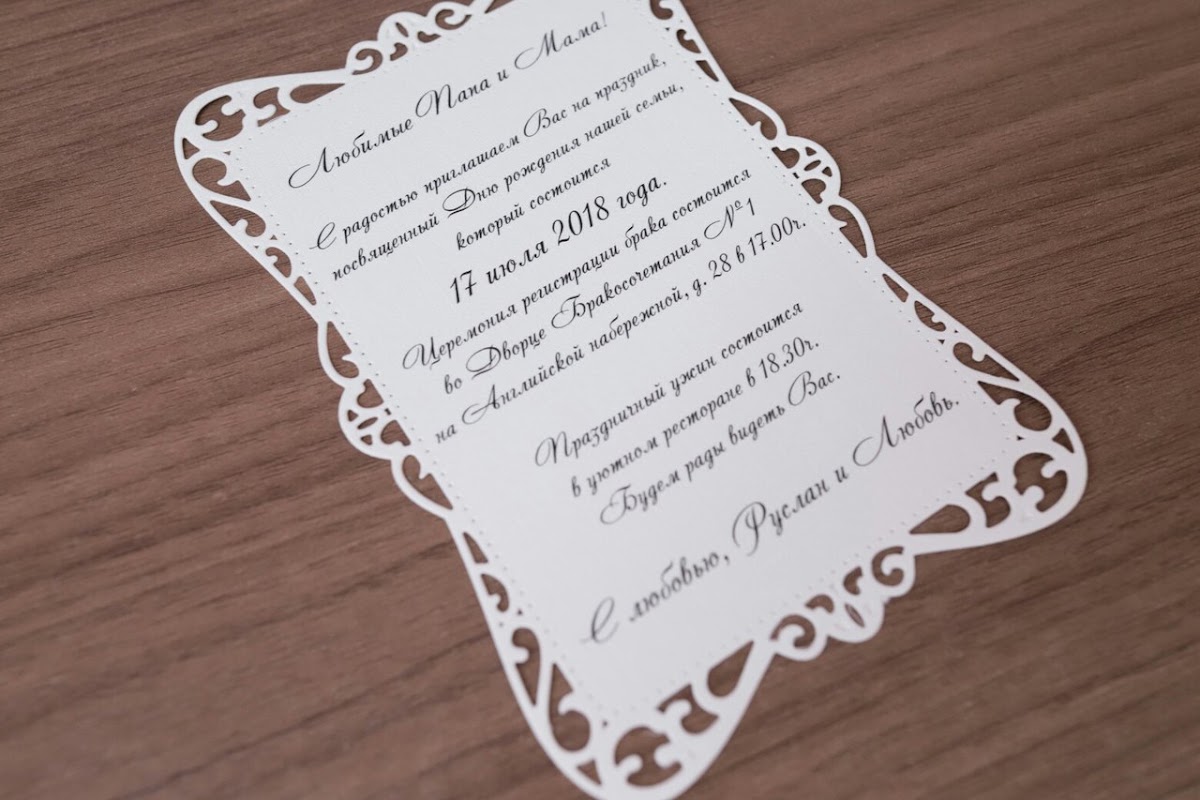 Любимые Папа и Мама!
С радостью приглашаем Вас на праздник,
посвященный Дню рождения нашей семьи,
который состоится
17 июля 2018 года.
Церемония регистрации брака состоится
во Дворце Бракосочетания №1
на Английской набережной, д. 28 в 17.00ч.
Праздничный ужин состоится
в уютном ресторане в 18.30ч.
Будем рады видеть Вас.
С любовью, Руслан и Любовь.